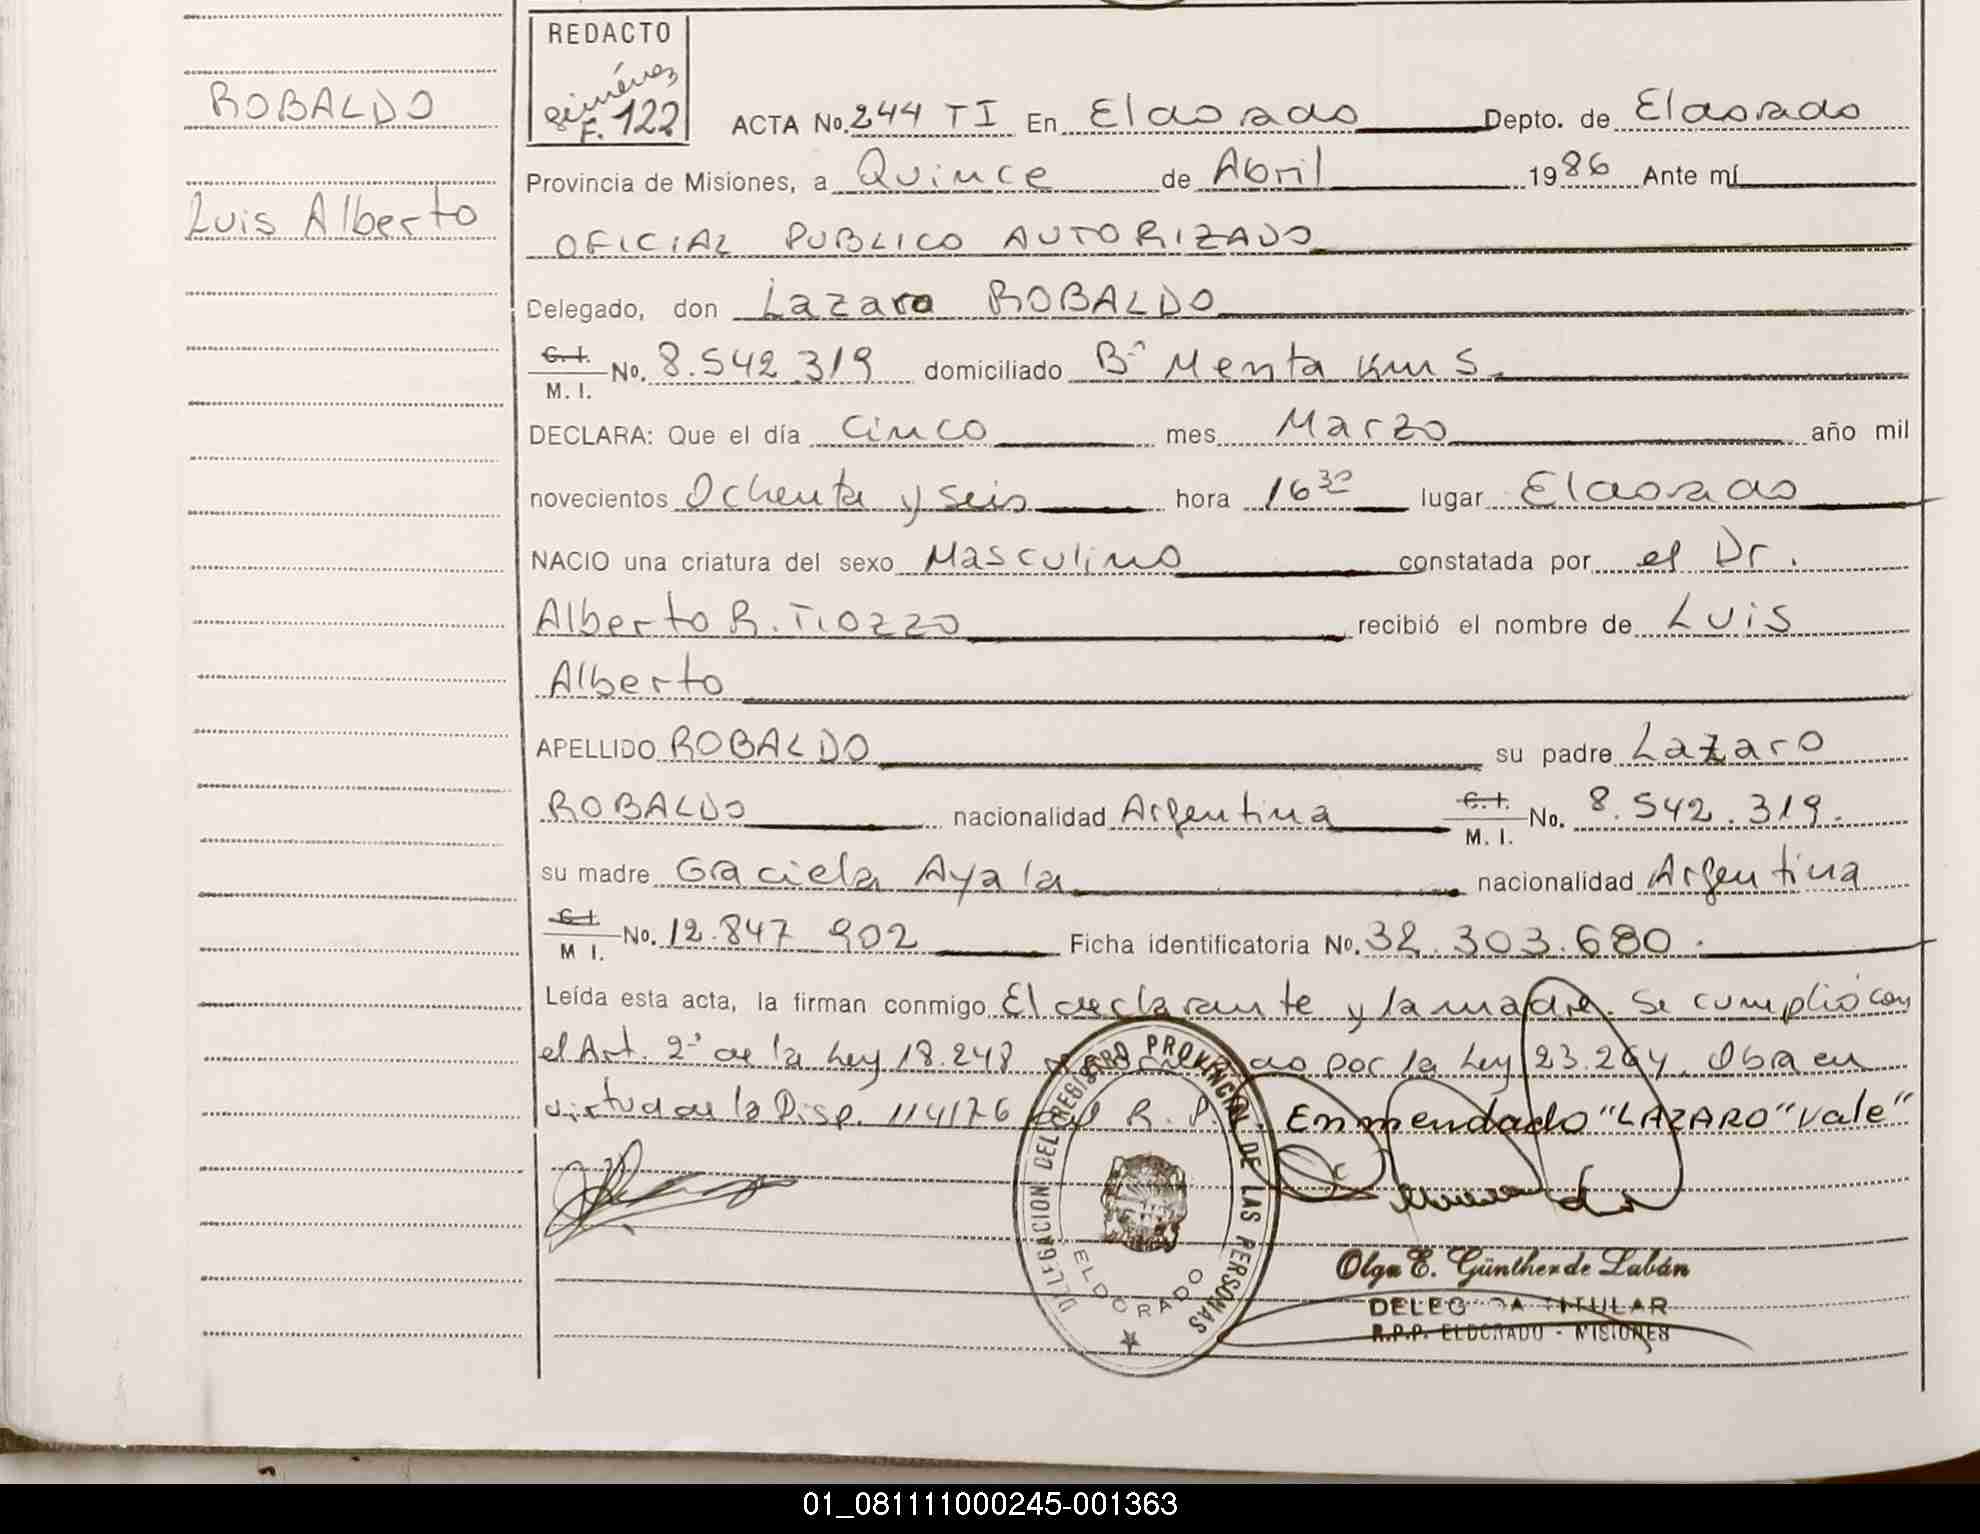 REDACTO
Giménez
F. 122
ROBALDO
Luis Alberto
ACTA No. 244 TI En Eldorado Depto. de Eldorado
Provincia de Misiones, a Quince de Abril 1986 Ante mí
OFICIAL PUBLICO AUTORIZADO
Delegado, don Lazaro ROBALDO
C. I. M. I. No. 8.542.319 domiciliado Bº Menta Km 5.
DECLARA: Que el día Cinco mes Marzo año mil
novecientos Ochenta y seis hora 16³⁰ lugar Eldorado
NACIO una criatura del sexo Masculino constatada por el Dr.
Alberto R. Tiozzo recibió el nombre de Luis
Alberto
APELLIDO ROBALDO su padre Lazaro
ROBALDO nacionalidad Argentina C. I. M. I. No. 8.542.319.
su madre Graciela Ayala nacionalidad Argentina
C. I. M I. No. 12.847 902 Ficha identificatoria No. 32.303.680.
Leída esta acta, la firman conmigo El declarante y la madre. Se cumplió con
el Art. 2º de la Ley 18.248 por la Ley 23.264. Obra en
virtud de la Disp. 114/76 del R. P. Enmendado "LAZARO" Vale"
DELEGACION DEL REGISTRO PROVINCIAL DE LAS PERSONAS
ELDORADO
Olga E. Günther de Labán
DELEGADA TITULAR
R.P.P. ELDORADO - MISIONES
01_081111000245-001363